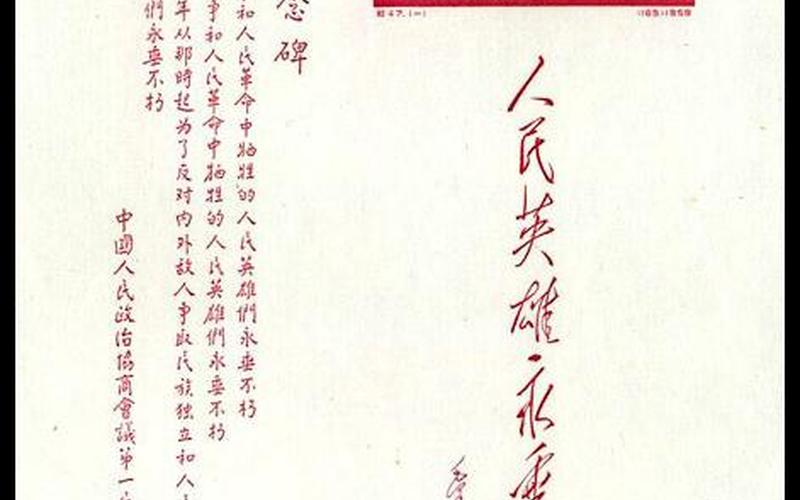 紀47.(一)
人民英雄永垂
念碑
和人民革命中牺牲的人民英雄們永垂不朽
事和人民革命中牺牲的人民英雄們永垂不朽
年从那時起为了反对内外敌人争取民族独立和人
們永垂不朽
中國人民政治協商會議第一